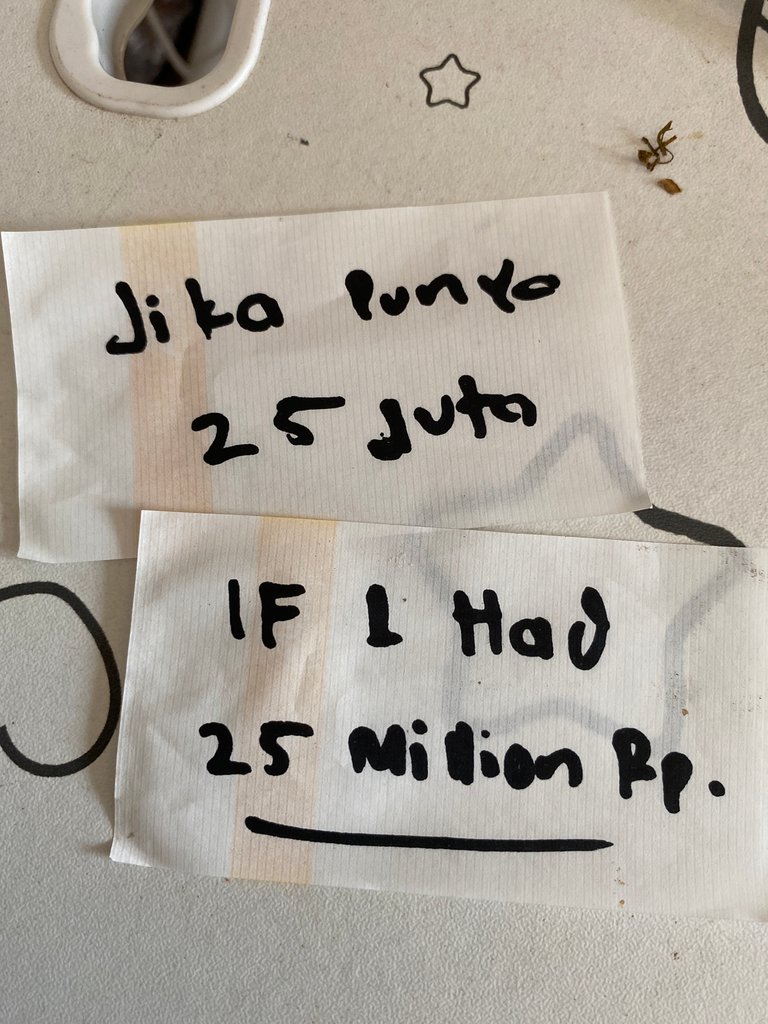 Jika Punya
25 Juta
IF I Had
25 Million Rp.